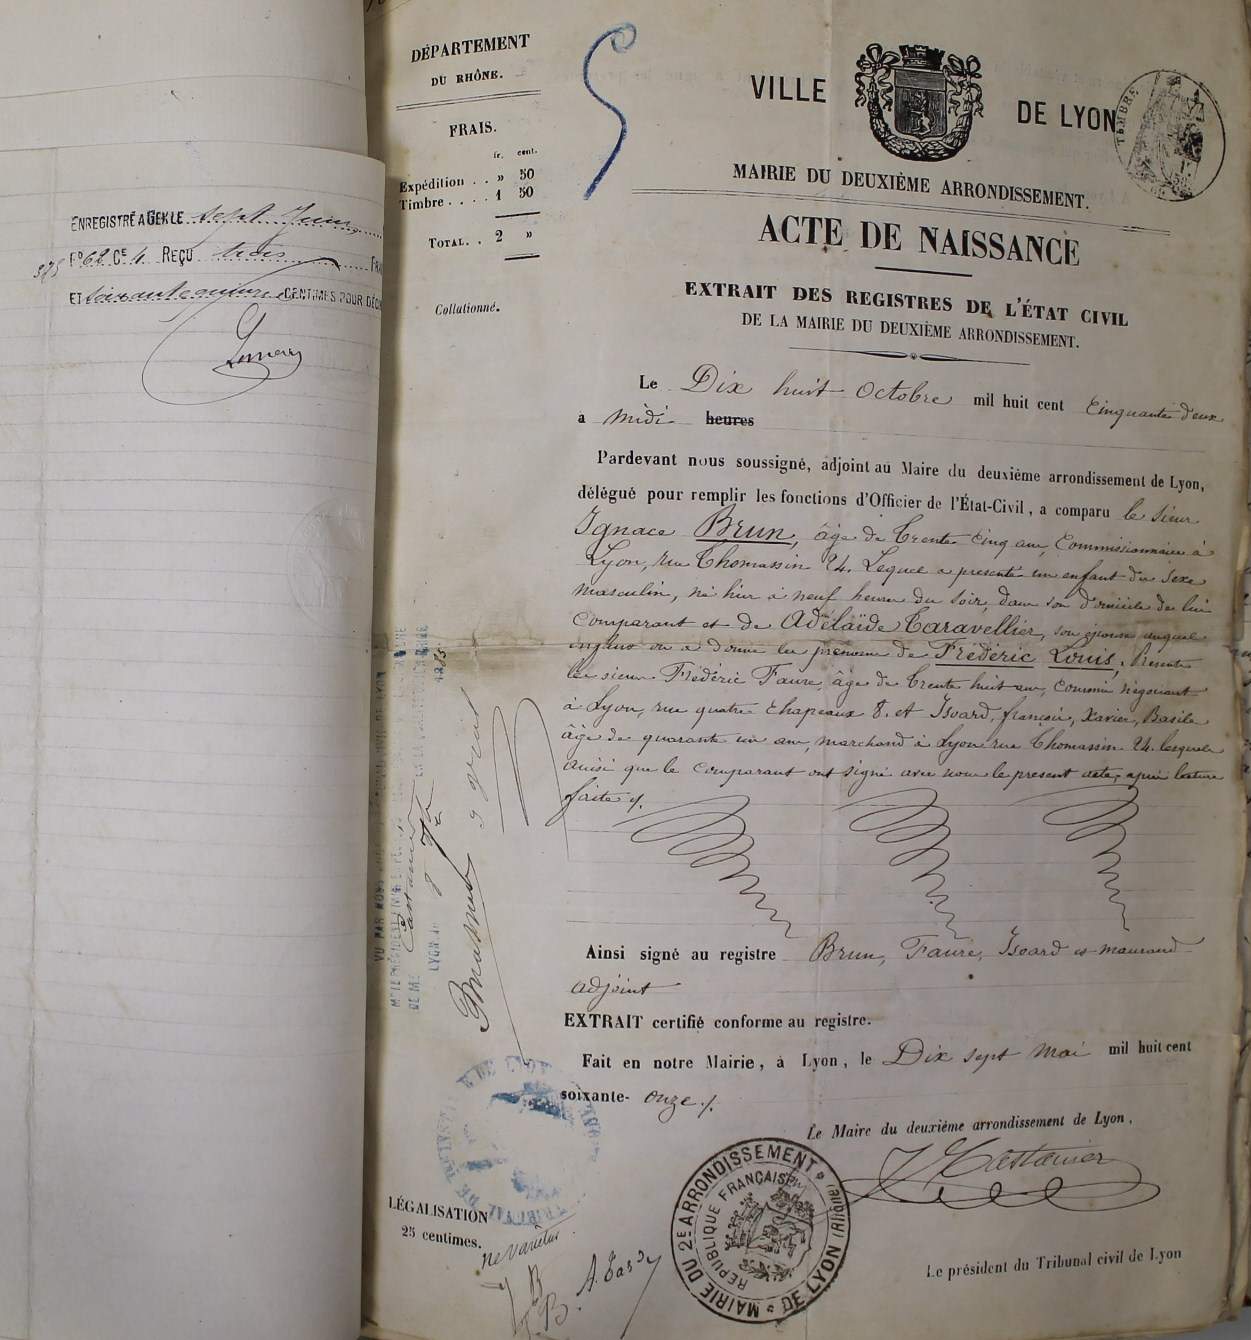 ENREGISTRÉ A GEX LE sept Juin
378 F° 62 Ce 4 REÇU trois FRA
ET soixante quinze CENTIMES POUR DÉCI
DÉPARTEMENT
DU RHÔNE.
FRAIS.
fr. cent.
Expédition . . » 50
Timbre . . . . 1 50
TOTAL. . 2 »
Collationné.
VILLE DE LYON
TIMBRE
MAIRIE DU DEUXIÈME ARRONDISSEMENT.
ACTE DE NAISSANCE
EXTRAIT DES REGISTRES DE L'ÉTAT CIVIL
DE LA MAIRIE DU DEUXIÈME ARRONDISSEMENT.
Le Dix huit Octobre mil huit cent Cinquante deux
à midi heures
Pardevant nous soussigné, adjoint au Maire du deuxième arrondissement de Lyon,
délégué pour remplir les fonctions d'Officier de l'État-Civil, a comparu le sieur
Ignace Brun, âgé de trente cinq ans, Commissionnaire à
Lyon, rue Thomassin 24. Lequel a présenté un enfant du sexe
masculin, né hier à neuf heures du soir, dans son domicile de lui
comparant et de Adélaïde Caravellier, son épouse auquel
enfant on a donné les prénoms de Frédéric Louis. Présents
les sieurs Frédéric Faure, âgé de trente huit ans, commis négociant
à Lyon, rue quatre Chapeaux 8. et Isoard, françois, Xavier, Basile
âgé de quarante un ans, marchand à Lyon rue Thomassin 24. lesquels
ainsi que le comparant ont signé avec nous le présent acte, après lecture
faite /.
Ainsi signé au registre Brun, Faure, Isoard et
adjoint
EXTRAIT certifié conforme au registre.
Fait en notre Mairie, à Lyon, le Dix sept Mai mil huit cent
soixante- onze /.
Le Maire du deuxième arrondissement de Lyon,
MAIRIE DU 2E ARRONDISSEMENT DE LYON (Rhône)
RÉPUBLIQUE FRANÇAISE
LÉGALISATION
25 centimes.
ne varietur
Le président du Tribunal civil de Lyon